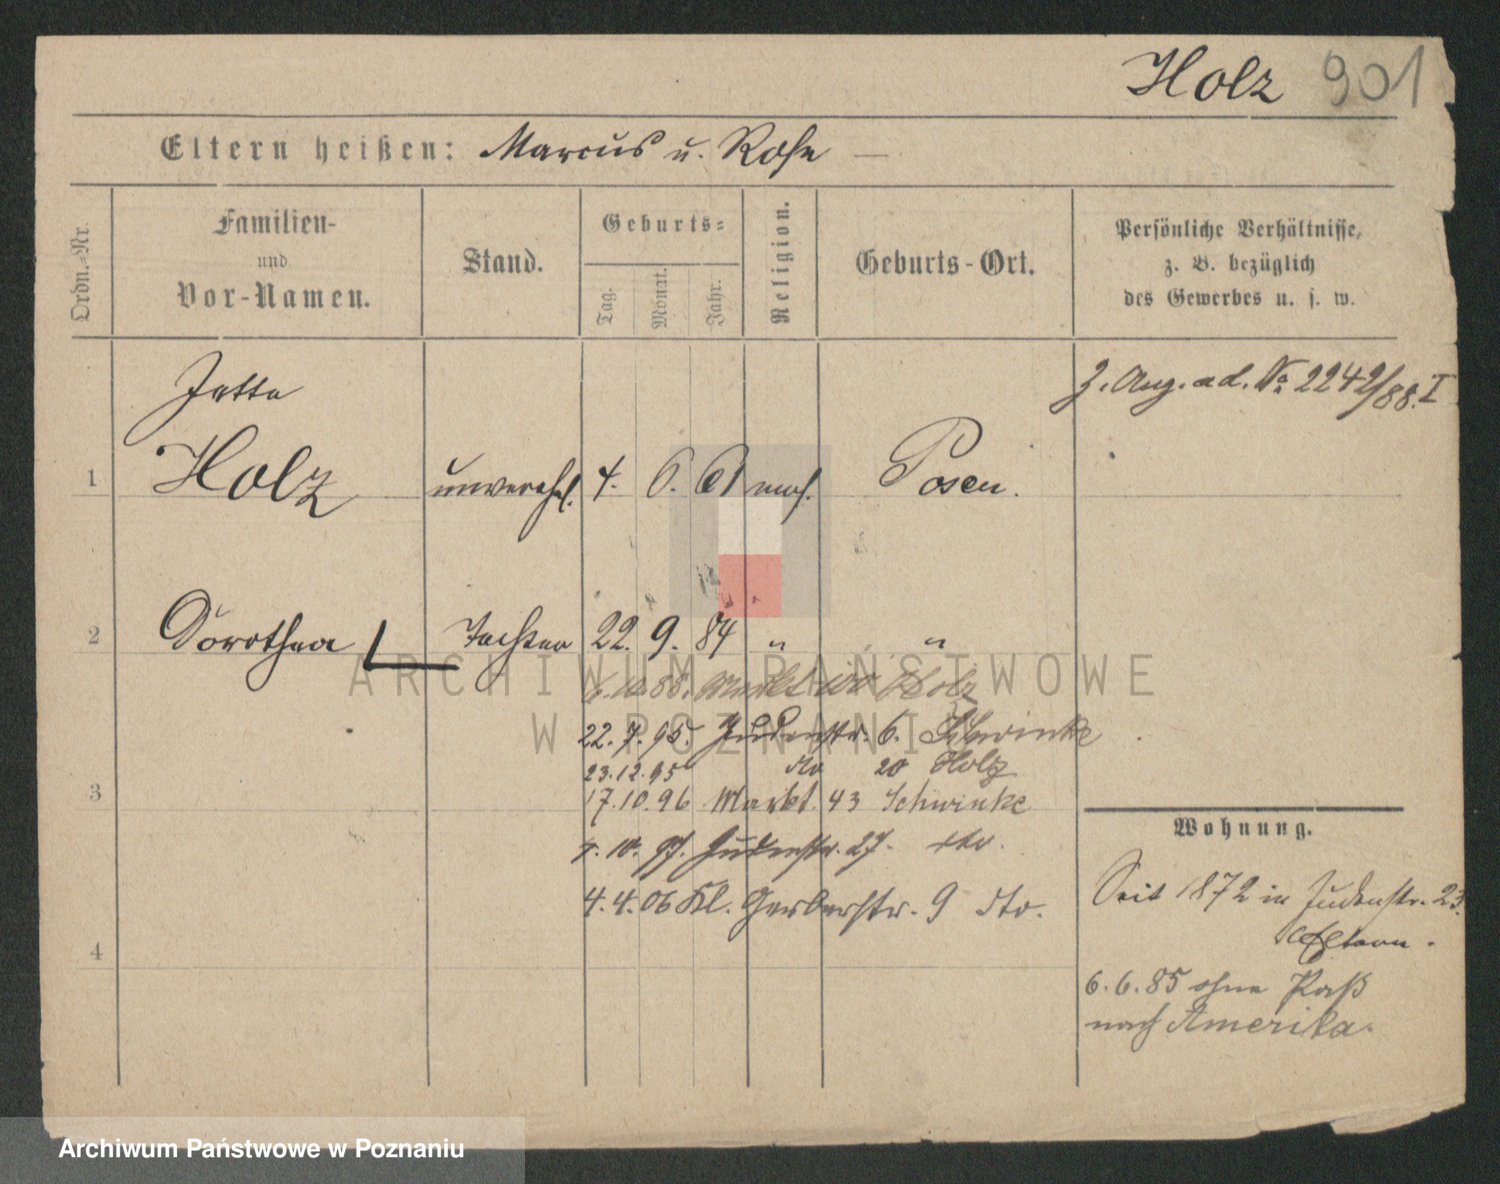 Holz 901
Eltern heißen: Marcus u. Rosa —
Ordn.-Nr.
Familien-
und
Vor-Namen.
Stand.
Geburts-
Tag.
Monat.
Jahr.
Religion.
Geburts-Ort.
Persönliche Verhältnisse,
z. B. bezüglich
des Gewerbes u. s. w.
Jette
z. Aug. ad. No 2242/88. I
1 Holz unverehl. 4. 6. 61 mos. Posen.
2 Dorothea Tochter 22. 9. 84 " "
6.10.88. Markt 100 Holz
22.7.95. Judenstr. 6. Schwinke
23.12.95 dto 20 Holz
3 17.10.96 Markt. 43 Schwinke
Wohnung.
1.10.97. Judenstr. 27. dto.
4.4.06 Kl. Gerberstr. 9 dto.
Seit 1872 in Judenstr. 23.
Eltern.
4
6.6.85 ohne Paß
nach Amerika.
ARCHIWUM PAŃSTWOWE
W POZNANIU
Archiwum Państwowe w Poznaniu